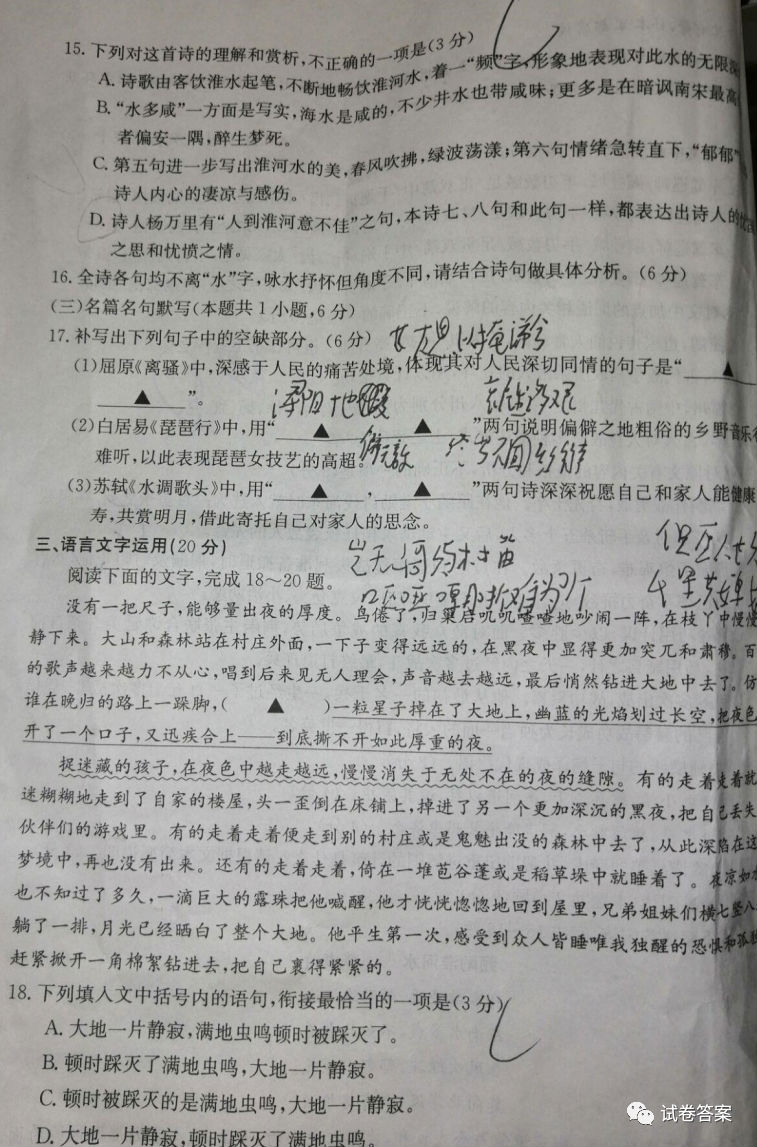 15. 下列对这首诗的理解和赏析,不正确的一项是(3分)
A. 诗歌由客饮淮水起笔,不断地畅饮淮河水,着一“频”字,形象地表现对此水的无限
B. “水多咸”一方面是写实,海水是咸的,不少井水也带咸味;更多是在暗讽南宋最高
者偏安一隅,醉生梦死。
C. 第五句进一步写出淮河水的美,春风吹拂,绿波荡漾;第六句情绪急转直下,“郁郁”
诗人内心的凄凉与感伤。
D. 诗人杨万里有“人到淮河意不佳”之句,本诗七、八句和此句一样,都表达出诗人的
之思和忧愤之情。
16. 全诗各句均不离“水”字,咏水抒怀但角度不同,请结合诗句做具体分析。(6分)
(三)名篇名句默写(本题共1小题,6分)
17. 补写出下列句子中的空缺部分。(6分)
(1)屈原《离骚》中,深感于人民的痛苦处境,体现其对人民深切同情的句子是“ ▲
▲ ”。
浔阳地僻
(2)白居易《琵琶行》中,用“ ▲ ▲ ”两句说明偏僻之地粗俗的乡野音乐
难听,以此表现琵琶女技艺的高超。
(3)苏轼《水调歌头》中,用“ ▲ , ▲ ”两句诗深深祝愿自己和家人能健康
寿,共赏明月,借此寄托自己对家人的思念。
三、语言文字运用(20分)
岂无
但
阅读下面的文字,完成18~20题。
没有一把尺子,能够量出夜的厚度。鸟倦了,归巢后叽叽喳喳地吵闹一阵,在枝丫中慢慢
静下来。大山和森林站在村庄外面,一下子变得远远的,在黑夜中显得更加突兀和肃穆。百
的歌声越来越力不从心,唱到后来见无人理会,声音越去越远,最后悄然钻进大地中去了。仿
谁在晚归的路上一跺脚,( ▲ )一粒星子掉在了大地上,幽蓝的光焰划过长空,把夜色
开了一个口子,又迅疾合上——到底撕不开如此厚重的夜。
捉迷藏的孩子,在夜色中越走越远,慢慢消失于无处不在的夜的缝隙。有的走着走着就
迷糊糊地走到了自家的楼屋,头一歪倒在床铺上,掉进了另一个更加深沉的黑夜,把自己丢失
伙伴们的游戏里。有的走着走着便走到别的村庄或是鬼魅出没的森林中去了,从此深陷在这
梦境中,再也没有出来。还有的走着走着,倚在一堆苞谷蓬或是稻草垛中就睡着了。夜凉如水
也不知过了多久,一滴巨大的露珠把他喊醒,他才恍恍惚惚地回到屋里,兄弟姐妹们横七竖八
躺了一排,月光已经晒白了整个大地。他平生第一次,感受到众人皆睡唯我独醒的恐惧和孤独
赶紧掀开一角棉絮钻进去,把自己裹得紧紧的。
18. 下列填入文中括号内的语句,衔接最恰当的一项是(3分)
A. 大地一片静寂,满地虫鸣顿时被踩灭了。
B. 顿时踩灭了满地虫鸣,大地一片静寂。
C. 顿时被踩灭的是满地虫鸣,大地一片静寂。
D. 大地一片静寂,顿时踩灭了满地虫鸣。
试卷答案